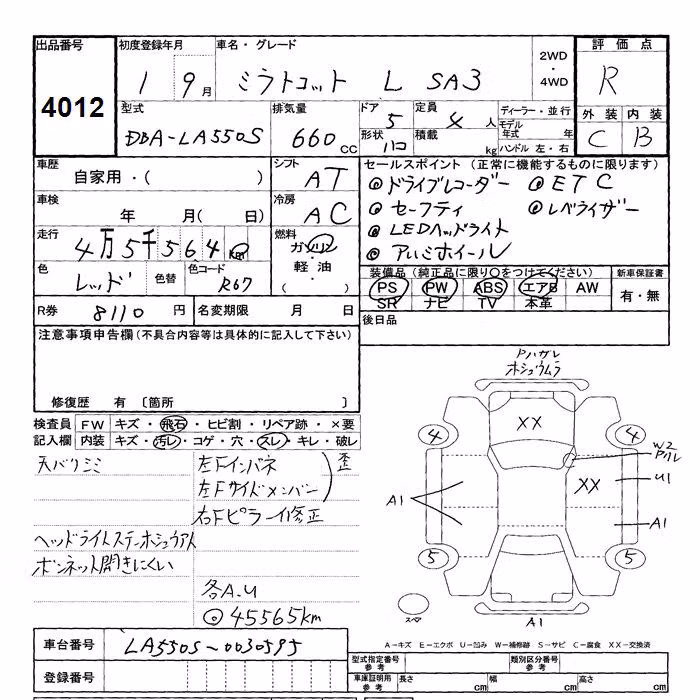 出品番号 初度登録年月 車名・グレード 2WD ・ 4WD 評価点
4012 1 9月 ミラトコット L SA3 R
型式 排気量 ドア 定員 ディーラー・並行 外装 内装
DBA-LA550S 660 CC 5 4人 モデル年式 年 C B
形状 ハコ 積載 kg ハンドル 左・右
車歴 シフト セールスポイント (正常に機能するものに限ります)
自家用・( ) AT ◎ドライブレコーダー ◎ETC
車検 冷房 ◎セーフティ ◎レベライザー
年 月( 日) AC ◎LEDヘッドライト
走行 燃料 ◎アルミホイール
4万5千564km ガソリン・軽油・( )
色 色替 色コード 装備品 (純正品に限り○をつけてください) 新車保証書
レッド R67 PS PW ABS エアB AW 有・無
SR ナビ TV 本革
R券 8110円 名変期限 月 日 後日品
注意事項申告欄 (不具合内容等は具体的に記入して下さい)
Pハガレ
ホシュウムラ
修復歴 有 〔箇所 〕
検査員 FW キズ・飛石・ヒビ割・リペア跡・×要
記入欄 内装 キズ・汚レ・コゲ・穴・スレ・キレ・破レ
XX
4 4
天バリシミ 左Fインパネ 歪
W2
Pハレ
左Fサイドメンバー
XX U1
右Fピラー修正
A1 A1
ヘッドライトステーホシュウアト
ボンネット開きにくい
5 5
各A.U
◎45565km
スペア A1
車台番号 LA550S-0030595
A-キズ E-エクボ U-凹み W-補修跡 S-サビ C-腐食 XX-交換済
登録番号
型式指定番号 参考 類別区分番号 参考
車庫証明用 参考 長さ cm 幅 cm 高さ cm